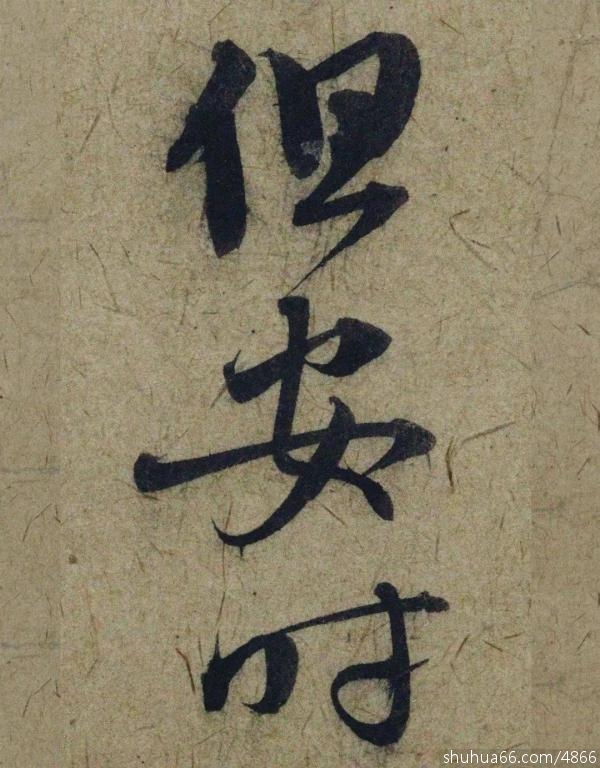 但安时
shuhua66.com/4866